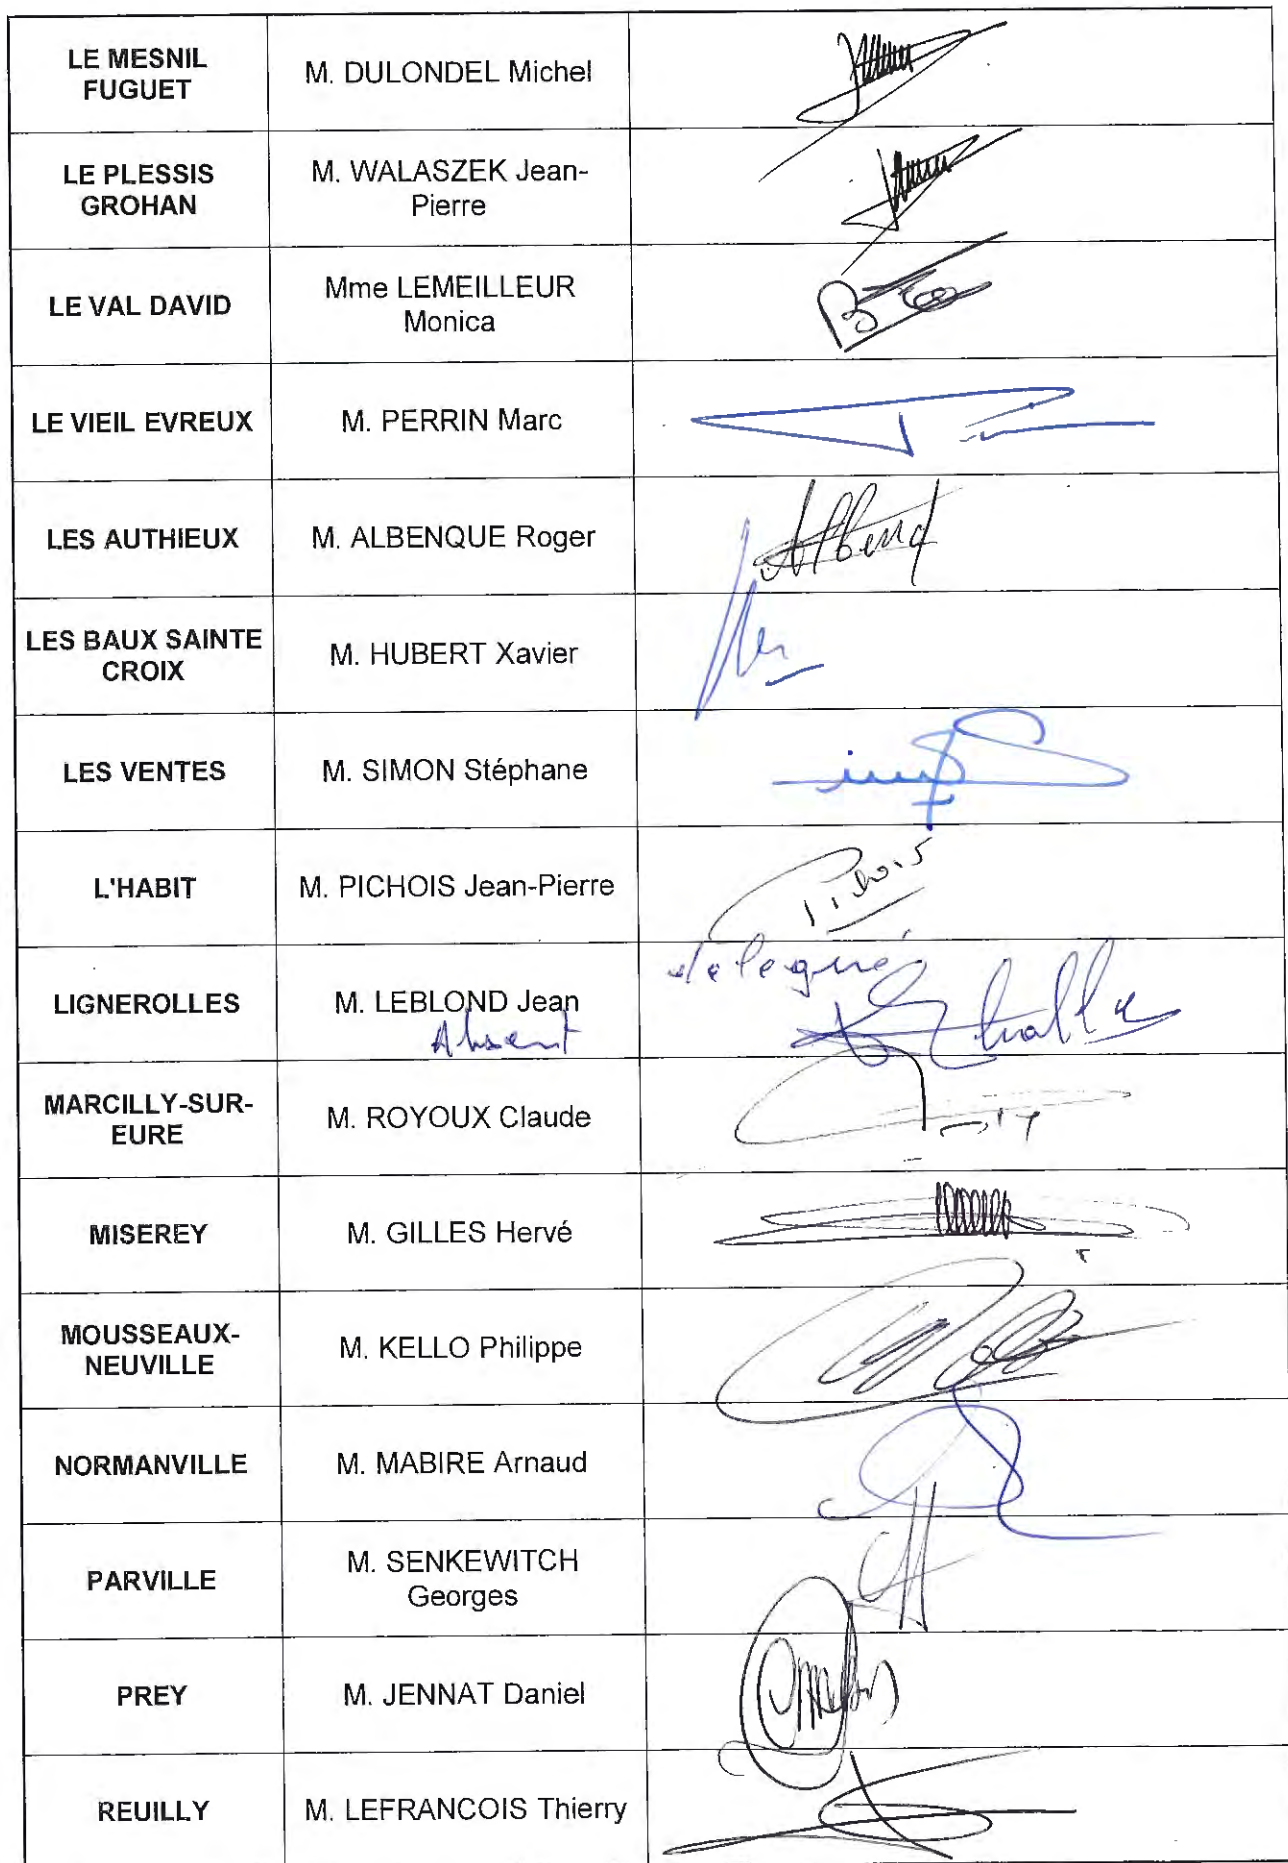 LE MESNIL
FUGUET
M. DULONDEL Michel
LE PLESSIS
GROHAN
M. WALASZEK Jean-
Pierre
LE VAL DAVID
Mme LEMEILLEUR
Monica
LE VIEIL EVREUX
M. PERRIN Marc
LES AUTHIEUX
M. ALBENQUE Roger
LES BAUX SAINTE
CROIX
M. HUBERT Xavier
LES VENTES
M. SIMON Stéphane
L'HABIT
M. PICHOIS Jean-Pierre
Pichois
LIGNEROLLES
M. LEBLOND Jean
Absent
délégué
MARCILLY-SUR-
EURE
M. ROYOUX Claude
MISEREY
M. GILLES Hervé
MOUSSEAUX-
NEUVILLE
M. KELLO Philippe
NORMANVILLE
M. MABIRE Arnaud
PARVILLE
M. SENKEWITCH
Georges
PREY
M. JENNAT Daniel
REUILLY
M. LEFRANCOIS Thierry